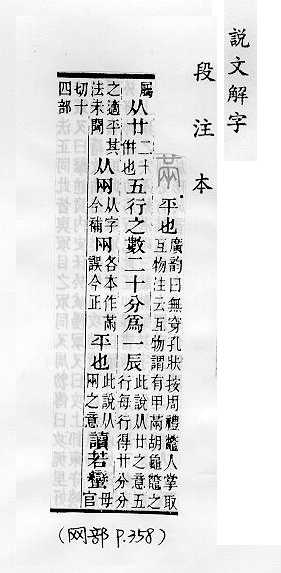 說文解字
段注本
㒼 平也廣韵曰無穿孔狀按周禮鼈人掌取互物注云互物謂有甲㒼胡龜鼈之
屬从廿二十倂也五行之數二十分爲一辰此說从廿之意五行每行得廿分分
之適平其法未聞从㒳从字今補㒳各本作㒼誤今正平也此說从㒳之意讀若蠻毋官
切十四部
(网部 P.358)